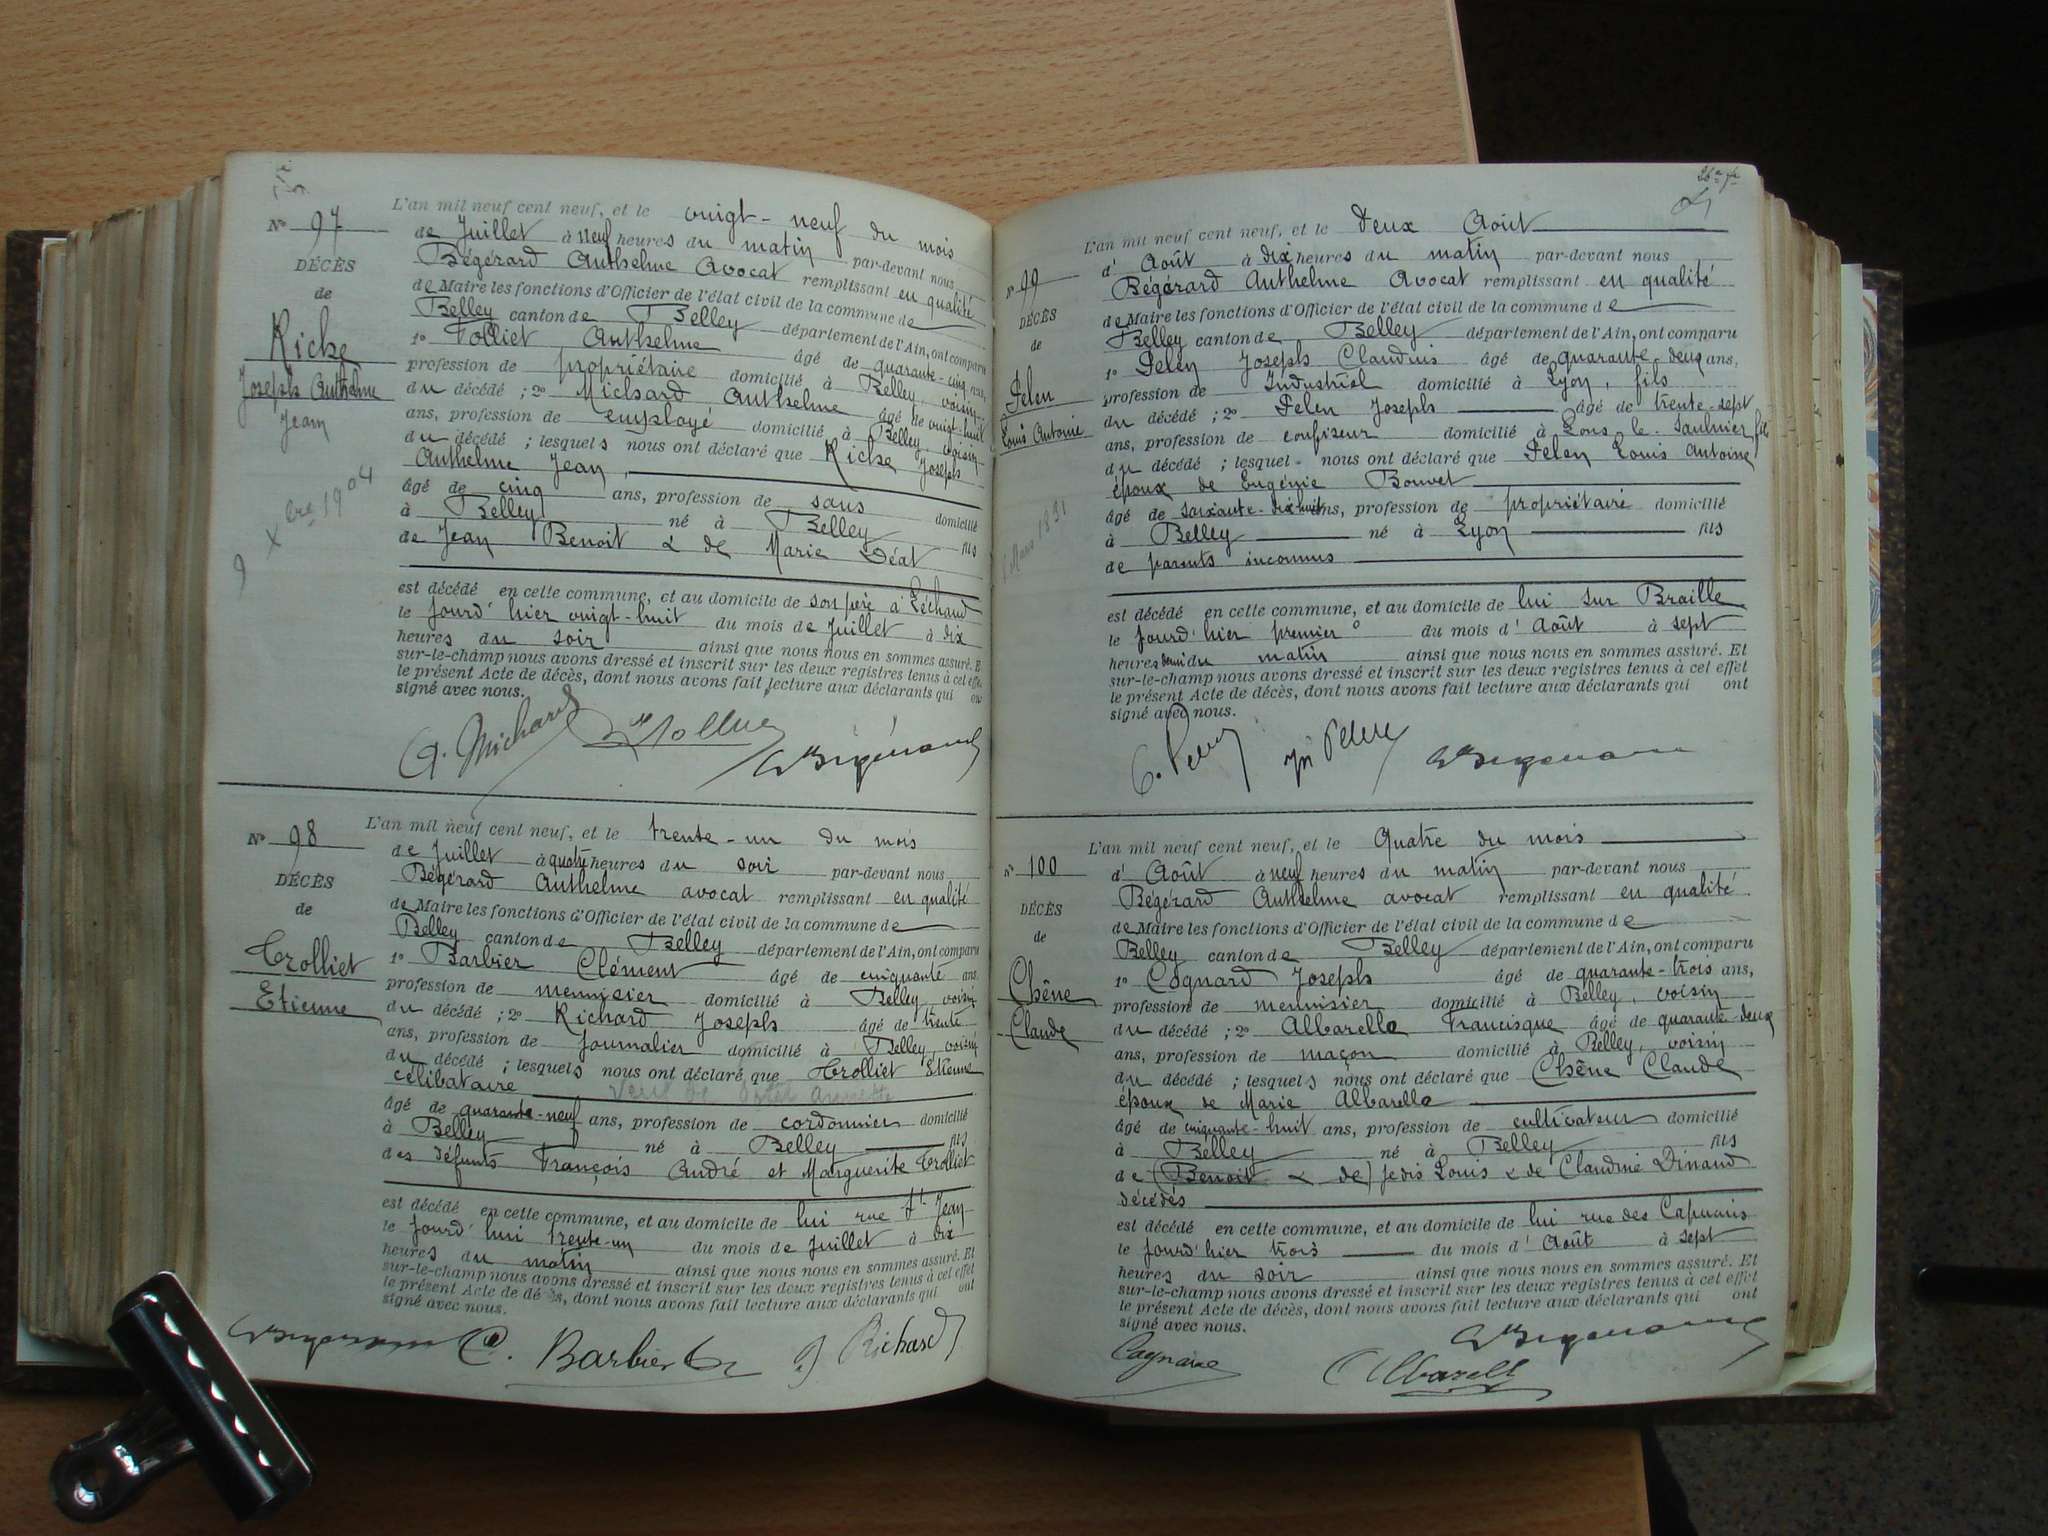 Nº 97
DÉCÈS
de
Riche
Joseph Anthelme
Jean
9 Xbre 1904
L'an mil neuf cent neuf, et le vingt-neuf du mois
de Juillet à neuf heures du matin par-devant nous
Bégérard Anthelme Avocat remplissant en qualité
de Maire les fonctions d'Officier de l'état civil de la commune de
Belley canton de Belley département de l'Ain, ont comparu
1º Tolliet Anthelme âgé de quarante-cinq ans,
profession de propriétaire domicilié à Belley, voisin
du décédé ; 2º Michard Anthelme âgé de vingt-huit
ans, profession de employé domicilié à Belley, voisin
du décédé ; lesquels nous ont déclaré que Riche Joseph
Anthelme Jean,
âgé de cinq ans, profession de sans domicilié
à Belley né à Belley fils
de Jean Benoit & de Marie Déat
est décédé en cette commune, et au domicile de son père à Léchaud
le jourd'hier vingt-huit du mois de Juillet à dix
heures du soir ainsi que nous nous en sommes assuré. Et
sur-le-champ nous avons dressé et inscrit sur les deux registres tenus à cet effet
le présent Acte de décès, dont nous avons fait lecture aux déclarants qui ont
signé avec nous.
A. Michard
Nº 98
DÉCÈS
de
Trolliet
Etienne
L'an mil neuf cent neuf, et le trente-un du mois
de Juillet à quatre heures du soir par-devant nous
Bégérard Anthelme avocat remplissant en qualité
de Maire les fonctions d'Officier de l'état civil de la commune de
Belley canton de Belley département de l'Ain, ont comparu
1º Barbier Clément âgé de cinquante ans
profession de menuisier domicilié à Belley, voisin
du décédé ; 2º Richard Joseph âgé de trente
ans, profession de Journalier domicilié à Belley, voisin
du décédé ; lesquels nous ont déclaré que Trolliet Etienne
célibataire
âgé de quarante-neuf ans, profession de cordonnier domicilié
à Belley né à Belley fils
des défunts François André et Marguerite Trolliet
est décédé en cette commune, et au domicile de lui rue St Jean
le jourd'hui trente-un du mois de Juillet à dix
heures du matin ainsi que nous nous en sommes assuré. Et
sur-le-champ nous avons dressé et inscrit sur les deux registres tenus à cet effet
le présent Acte de décès, dont nous avons fait lecture aux déclarants qui ont
signé avec nous.
C. Barbier J Richard
Nº 99
DÉCÈS
de
Pelen
Louis Antoine
Mars 1831
L'an mil neuf cent neuf, et le deux Août
d'Août à dix heures du matin par-devant nous
Bégérard Anthelme Avocat remplissant en qualité
de Maire les fonctions d'Officier de l'état civil de la commune de
Belley canton de Belley département de l'Ain, ont comparu
1º Pelen Joseph Claudius âgé de quarante-deux ans,
profession de Industriel domicilié à Lyon, fils
du décédé ; 2º Pelen Joseph âgé de trente-sept
ans, profession de confiseur domicilié à Lons-le-Saulnier, fils
du décédé ; lesquels nous ont déclaré que Pelen Louis Antoine
époux de Eugénie Bouvet
âgé de soixante-dix-huit ans, profession de propriétaire domicilié
à Belley né à Lyon fils
de parents inconnus
est décédé en cette commune, et au domicile de lui sur Braille
le jourd'hier premier du mois d'Août à sept
heures demi du matin ainsi que nous nous en sommes assuré. Et
sur-le-champ nous avons dressé et inscrit sur les deux registres tenus à cet effet
le présent Acte de décès, dont nous avons fait lecture aux déclarants qui ont
signé avec nous.
Nº 100
DÉCÈS
de
Chêne
Claude
L'an mil neuf cent neuf, et le Quatre du mois
d'Août à neuf heures du matin par-devant nous
Bégérard Anthelme avocat remplissant en qualité
de Maire les fonctions d'Officier de l'état civil de la commune de
Belley canton de Belley département de l'Ain, ont comparu
1º Cognard Joseph âgé de quarante-trois ans,
profession de menuisier domicilié à Belley, voisin
du décédé ; 2º Albarello Francisque âgé de quarante-deux
ans, profession de maçon domicilié à Belley, voisin
du décédé ; lesquels nous ont déclaré que Chêne Claude
époux de Marie Albarello
âgé de cinquante-huit ans, profession de cultivateur domicilié
à Belley né à Belley fils
de (Benoit & de) Louis & de Claudine Dinand
décédés
est décédé en cette commune, et au domicile de lui rue des Capucins
le jourd'hier trois du mois d'Août à sept
heures du soir ainsi que nous nous en sommes assuré. Et
sur-le-champ nous avons dressé et inscrit sur les deux registres tenus à cet effet
le présent Acte de décès, dont nous avons fait lecture aux déclarants qui ont
signé avec nous.